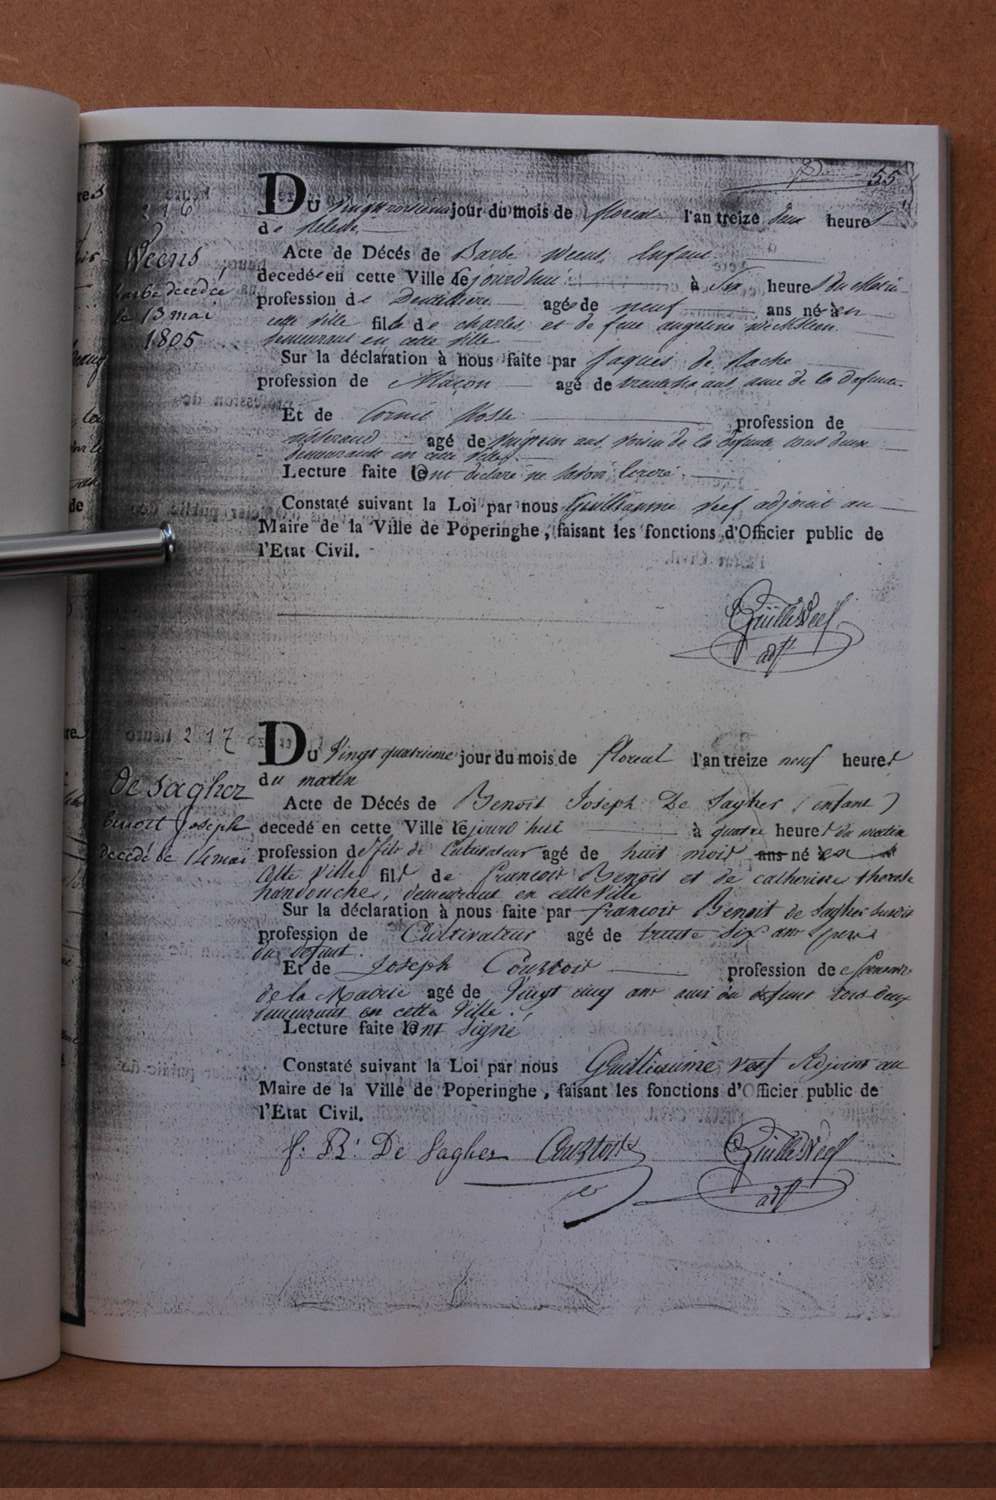 55
216
Weens
barbe decedée
le 13 mai
1805
Du vingt troisieme jour du mois de floreal l'an treize deux heures
de relevée
Acte de Décés de Barbe Weens, Enfant
decedée en cette Ville le jourdhui à six heures du Matin
profession de Dentelliere agée de neuf ans né à en
cette ville fille de charles et de feue angeline
demeurant en cette ville
Sur la déclaration à nous faite par Jaques de
profession de Maçon agé de trente six ans, ami de la defunte
Et de Corneil profession de
agé de ans, voisin de la defunte tous deux
demeurants en cette ville
Lecture faite ont declaré ne savoir
Constaté suivant la Loi par nous Guillaume Reef adjoint au
Maire de la Ville de Poperinghe, faisant les fonctions d'Officier public de
l'Etat Civil.
Guille Reef
adjt
217
de Sagher
benoit Joseph
decédé le 14 mai
Du Vingt quatrieme jour du mois de floreal l'an treize neuf heures
du matin
Acte de Décés de Benoit Joseph De Sagher (enfant)
decedé en cette Ville le jourd'hui à quatre heures du matin
profession de fils de Cultivateur agé de huit mois ans né en
cette Ville fils de francois Benoit et de catherine therese
handouche, demeurant en cette Ville
Sur la déclaration à nous faite par francois Benoit de Sagher susdit
profession de Cultivateur agé de trente six ans pere
du defunt.
Et de Joseph Coustoir profession de
de la Mairie agé de Vingt cinq ans ami du defunt tous deux
demeurant en cette Ville.
Lecture faite ont signé
Constaté suivant la Loi par nous Guillaume Reef Adjoint au
Maire de la Ville de Poperinghe, faisant les fonctions d'Officier public de
l'Etat Civil.
f: B: De Sagher Coustoir Guille Reef
adjt